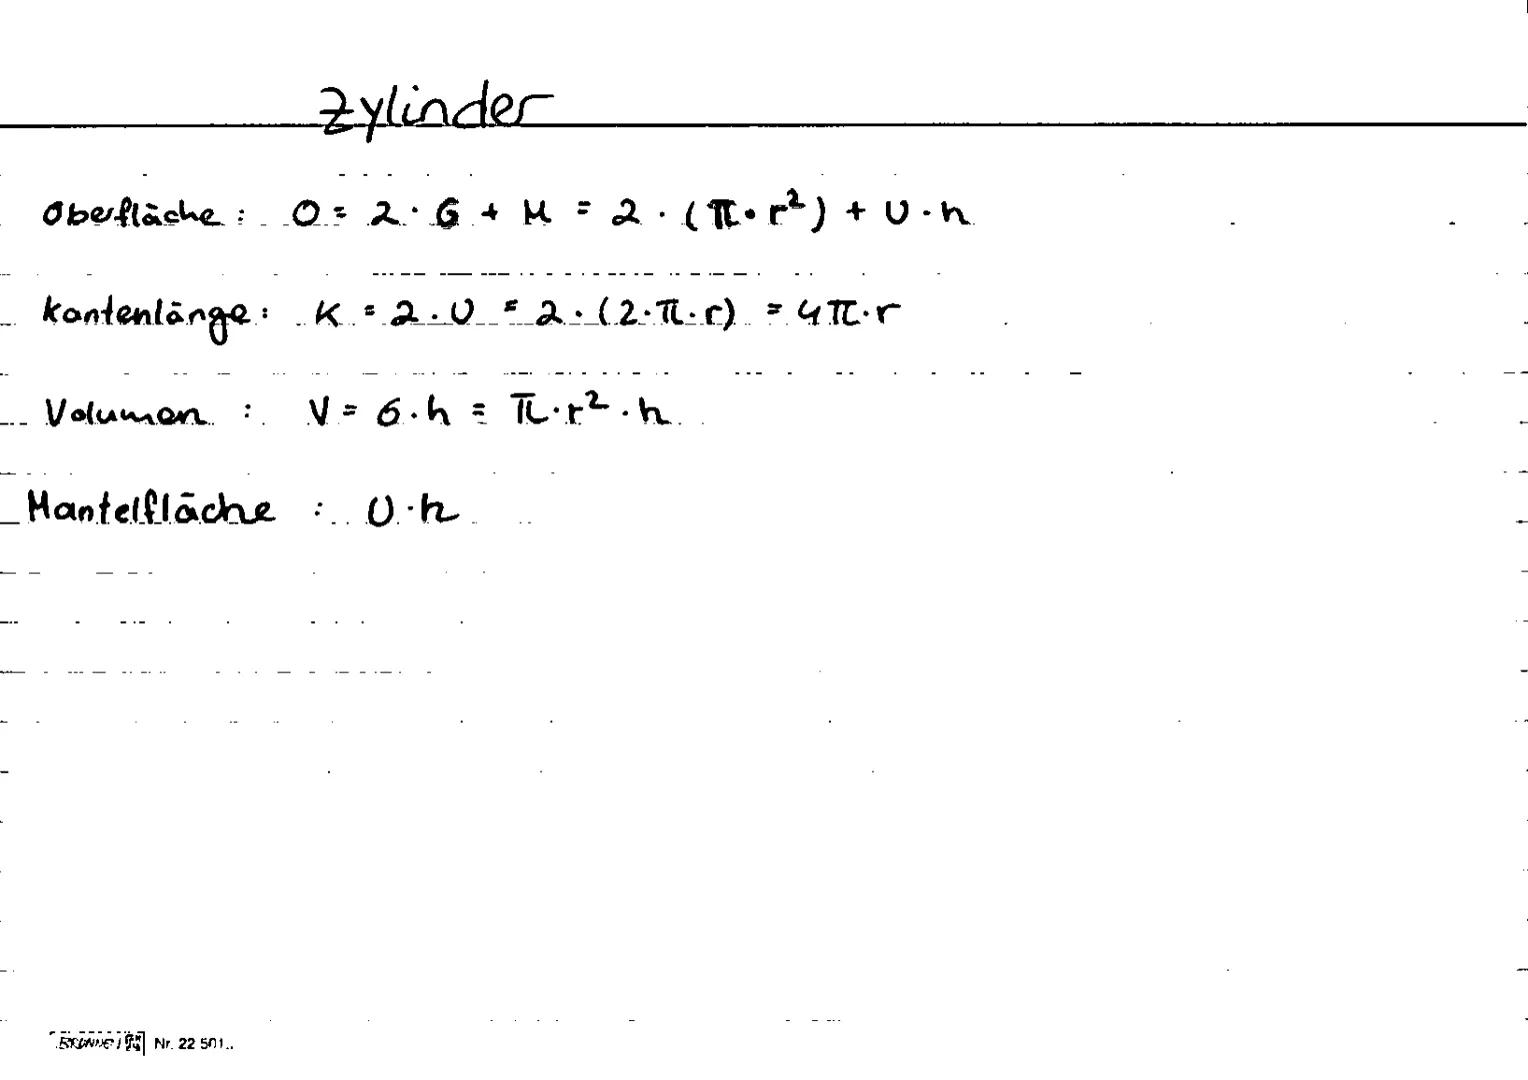 Zylinder
Oberfläche: O = 2 · G + M = 2 · (π · r²) + U · h
Kantenlänge: K = 2 · U = 2 · (2 · π · r) = 4π · r
Volumen : V = G · h = π · r² · h
Mantelfläche : U · h
Nr. 22 501